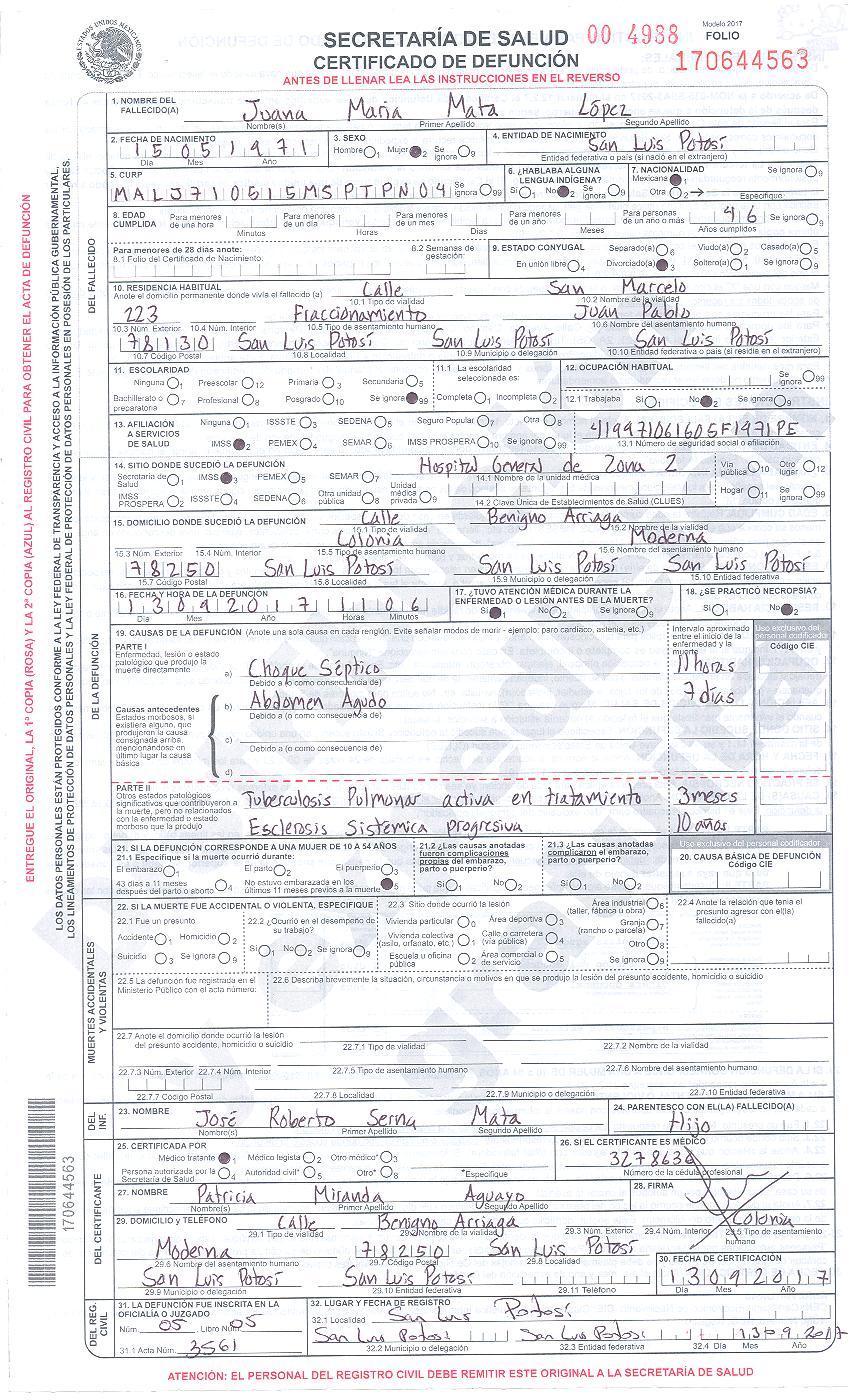 ESTADOS UNIDOS MEXICANOS
SECRETARÍA DE SALUD 00 4988
Modelo 2017
FOLIO
CERTIFICADO DE DEFUNCIÓN 170644563
ANTES DE LLENAR LEA LAS INSTRUCCIONES EN EL REVERSO
ENTREGUE EL ORIGINAL, LA 1ª COPIA (ROSA) Y LA 2ª COPIA (AZUL) AL REGISTRO CIVIL PARA OBTENER EL ACTA DE DEFUNCIÓN
LOS DATOS PERSONALES ESTÁN PROTEGIDOS CONFORME A LA LEY FEDERAL DE TRANSPARENCIA Y ACCESO A LA INFORMACIÓN PÚBLICA GUBERNAMENTAL,
LOS LINEAMIENTOS DE PROTECCIÓN DE DATOS PERSONALES Y LA LEY FEDERAL DE PROTECCIÓN DE DATOS PERSONALES EN POSESIÓN DE LOS PARTICULARES.
DEL FALLECIDO
1. NOMBRE DEL FALLECIDO(A) Juana Maria Mata López
Nombre(s) Primer Apellido Segundo Apellido
2. FECHA DE NACIMIENTO 15051971 3. SEXO Hombre 1 Mujer 2 Se ignora 9 4. ENTIDAD DE NACIMIENTO San Luis Potosí
Día Mes Año Entidad federativa o país (si nació en el extranjero)
5. CURP MALJ710515MSPTPN04 Se ignora 99 6. ¿HABLABA ALGUNA LENGUA INDÍGENA? Sí 1 No 2 Se ignora 9 7. NACIONALIDAD Mexicana 1 Otra 2 Se ignora 9
Especifique
8. EDAD CUMPLIDA Para menores de una hora Para menores de un día Para menores de un mes Para menores de un año Para personas de un año o más 46 Se ignora 9
Minutos Horas Días Meses Años cumplidos
Para menores de 28 días anote: 8.2 Semanas de gestación: 9. ESTADO CONYUGAL Separado(a) 6 Viudo(a) 2 Casado(a) 5
8.1 Folio del Certificado de Nacimiento: En unión libre 4 Divorciado(a) 3 Soltero(a) 1 Se ignora 9
10. RESIDENCIA HABITUAL Calle San Marcelo
Anote el domicilio permanente donde vivía el fallecido (a) 10.1 Tipo de vialidad 10.2 Nombre de la vialidad
223 Fraccionamiento Juan Pablo
10.3 Núm. Exterior 10.4 Núm. Interior 10.5 Tipo de asentamiento humano 10.6 Nombre del asentamiento humano
78130 San Luis Potosí San Luis Potosí San Luis Potosí
10.7 Código Postal 10.8 Localidad 10.9 Municipio o delegación 10.10 Entidad federativa o país (si residía en el extranjero)
11. ESCOLARIDAD 11.1 La escolaridad seleccionada es: 12. OCUPACIÓN HABITUAL Se ignora 99
Ninguna 1 Preescolar 12 Primaria 3 Secundaria 5
Bachillerato o preparatoria 7 Profesional 8 Posgrado 10 Se ignora 99 Completa 1 Incompleta 2 12.1 Trabajaba Sí 1 No 2 Se ignora 9
13. AFILIACIÓN A SERVICIOS DE SALUD Ninguna 1 ISSSTE 3 SEDENA 5 Seguro Popular 7 Otra 8 419971061605F1971PE
IMSS 2 PEMEX 4 SEMAR 6 IMSS PROSPERA 10 Se ignora 99 13.1 Número de seguridad social o afiliación
DE LA DEFUNCIÓN
14. SITIO DONDE SUCEDIÓ LA DEFUNCIÓN Hospital General de Zona 2
Secretaría de Salud 1 IMSS 3 PEMEX 5 SEMAR 7 14.1 Nombre de la unidad médica Vía pública 10 Otro lugar 12
IMSS PROSPERA 2 ISSSTE 4 SEDENA 6 Otra unidad pública 8 Unidad médica privada 9 14.2 Clave Única de Establecimientos de Salud (CLUES) Hogar 11 Se ignora 99
15. DOMICILIO DONDE SUCEDIÓ LA DEFUNCIÓN Calle Benigno Arriaga
15.1 Tipo de vialidad 15.2 Nombre de la vialidad
Colonia Moderna
15.3 Núm. Exterior 15.4 Núm. Interior 15.5 Tipo de asentamiento humano 15.6 Nombre del asentamiento humano
78250 San Luis Potosí San Luis Potosí San Luis Potosí
15.7 Código Postal 15.8 Localidad 15.9 Municipio o delegación 15.10 Entidad federativa
16. FECHA Y HORA DE LA DEFUNCIÓN 17. ¿TUVO ATENCIÓN MÉDICA DURANTE LA ENFERMEDAD O LESIÓN ANTES DE LA MUERTE? 18. ¿SE PRACTICÓ NECROPSIA?
13092017 1106 Sí 1 No 2 Se ignora 9 Sí 1 No 2
Día Mes Año Horas Minutos
19. CAUSAS DE LA DEFUNCIÓN (Anote una sola causa en cada renglón. Evite señalar modos de morir - ejemplo: paro cardiaco, astenia, etc.) Intervalo aproximado entre el inicio de la enfermedad y la muerte Uso exclusivo del personal codificador
Código CIE
PARTE I
Enfermedad, lesión o estado patológico que produjo la muerte directamente a) Choque Séptico 11 horas
Debido a (o como consecuencia de)
b) Abdomen Agudo 7 días
Debido a (o como consecuencia de)
Causas antecedentes
Estados morbosos, si existiera alguno, que produjeron la causa consignada arriba, mencionándose en último lugar la causa básica
c)
Debido a (o como consecuencia de)
d)
PARTE II
Otros estados patológicos significativos que contribuyeron a la muerte, pero no relacionados con la enfermedad o estado morboso que la produjo
Tuberculosis Pulmonar activa en tratamiento 3 meses
Esclerosis Sistémica progresiva 10 años
21. SI LA DEFUNCIÓN CORRESPONDE A UNA MUJER DE 10 A 54 AÑOS
21.1 Especifique si la muerte ocurrió durante:
El embarazo 1 El parto 2 El puerperio 3
43 días a 11 meses después del parto o aborto 4 No estuvo embarazada en los últimos 11 meses previos a la muerte 5
21.2 ¿Las causas anotadas fueron complicaciones propias del embarazo, parto o puerperio? Sí 1 No 2
21.3 ¿Las causas anotadas complicaron el embarazo, parto o puerperio? Sí 1 No 2
Uso exclusivo del personal codificador
20. CAUSA BÁSICA DE DEFUNCIÓN
Código CIE
MUERTES ACCIDENTALES Y VIOLENTAS
22. SI LA MUERTE FUE ACCIDENTAL O VIOLENTA, ESPECIFIQUE
22.1 Fue un presunto
Accidente 1 Homicidio 2
Suicidio 3 Se ignora 9
22.2 ¿Ocurrió en el desempeño de su trabajo?
Sí 1 No 2 Se ignora 9
22.3 Sitio donde ocurrió la lesión
Vivienda particular 0 Área deportiva 3 Área industrial (taller, fábrica u obra) 6
Vivienda colectiva (asilo, orfanato, etc.) 1 Calle o carretera (vía pública) 4 Granja (rancho o parcela) 7
Escuela u oficina pública 2 Área comercial o de servicio 5 Otro 8
Se ignora 9
22.4 Anote la relación que tenía el presunto agresor con el(la) fallecido(a)
22.5 La defunción fue registrada en el Ministerio Público con el acta número:
22.6 Describa brevemente la situación, circunstancia o motivos en que se produjo la lesión del presunto accidente, homicidio o suicidio
22.7 Anote el domicilio donde ocurrió la lesión del presunto accidente, homicidio o suicidio
22.7.1 Tipo de vialidad 22.7.2 Nombre de la vialidad
22.7.3 Núm. Exterior 22.7.4 Núm. Interior 22.7.5 Tipo de asentamiento humano 22.7.6 Nombre del asentamiento humano
22.7.7 Código Postal 22.7.8 Localidad 22.7.9 Municipio o delegación 22.7.10 Entidad federativa
DEL INF.
23. NOMBRE José Roberto Serna Mata 24. PARENTESCO CON EL(LA) FALLECIDO(A) Hijo
Nombre(s) Primer Apellido Segundo Apellido
DEL CERTIFICANTE
25. CERTIFICADA POR
Médico tratante 1 Médico legista 2 Otro médico* 3
Persona autorizada por la Secretaría de Salud 4 Autoridad civil* 5 Otro* 8 *Especifique
26. SI EL CERTIFICANTE ES MÉDICO
3278636
Número de la cédula profesional
27. NOMBRE Patricia Miranda Aguayo 28. FIRMA
Nombre(s) Primer Apellido Segundo Apellido
29. DOMICILIO y TELÉFONO Calle Benigno Arriaga Colonia
29.1 Tipo de vialidad 29.2 Nombre de la vialidad 29.3 Núm. Exterior 29.4 Núm. Interior 29.5 Tipo de asentamiento humano
Moderna 78250 San Luis Potosí
29.6 Nombre del asentamiento humano 29.7 Código Postal 29.8 Localidad 30. FECHA DE CERTIFICACIÓN
San Luis Potosí San Luis Potosí 13092017
29.9 Municipio o delegación 29.10 Entidad federativa 29.11 Teléfono Día Mes Año
DEL REG. CIVIL
31. LA DEFUNCIÓN FUE INSCRITA EN LA OFICIALÍA O JUZGADO
Núm. 05 Libro Núm. 05
31.1 Acta Núm. 3561
32. LUGAR Y FECHA DE REGISTRO
32.1 Localidad San Luis Potosí
San Luis Potosí San Luis Potosí 13092017
32.2 Municipio o delegación 32.3 Entidad federativa 32.4 Día Mes Año
170644563
ATENCIÓN: EL PERSONAL DEL REGISTRO CIVIL DEBE REMITIR ESTE ORIGINAL A LA SECRETARÍA DE SALUD